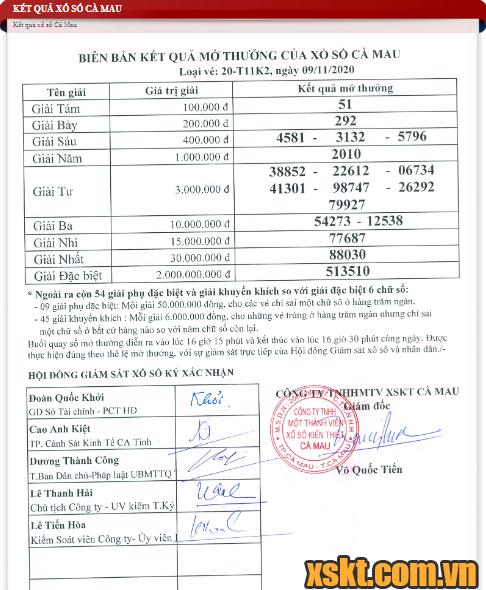 KẾT QUẢ XỔ SỐ CÀ MAU
Kết quả xổ số Cà Mau
BIÊN BẢN KẾT QUẢ MỞ THƯỞNG CỦA XỔ SỐ CÀ MAU
Loại vé: 20-T11K2, ngày 09/11/2020
Tên giải Giá trị giải Kết quả mở thưởng
Giải Tám 100.000 đ 51
Giải Bảy 200.000 đ 292
Giải Sáu 400.000 đ 4581 - 3132 - 5796
Giải Năm 1.000.000 đ 2010
Giải Tư 3.000.000 đ 38852 - 22612 - 06734
41301 - 98747 - 26292
79927
Giải Ba 10.000.000 đ 54273 - 12538
Giải Nhì 15.000.000 đ 77687
Giải Nhất 30.000.000 đ 88030
Giải Đặc biệt 2.000.000.000 đ 513510
* Ngoài ra còn 54 giải phụ đặc biệt và giải khuyến khích so với giải đặc biệt 6 chữ số:
- 09 giải phụ đặc biệt: Mỗi giải 50.000.000 đồng, cho các vé chỉ sai một chữ số ở hàng trăm ngàn.
- 45 giải khuyến khích : Mỗi giải 6.000.000 đồng, cho những vé trúng ở hàng trăm ngàn nhưng chỉ sai
một chữ số ở bất cứ hàng nào so với năm chữ số còn lại.
Buổi quay số mở thưởng diễn ra vào lúc 16 giờ 15 phút và kết thúc vào lúc 16 giờ 30 phút cùng ngày. Được
thực hiện đúng theo thể lệ mở thưởng, với sự giám sát trực tiếp của Hội đồng Giám sát xổ số và nhân dân./-
HỘI ĐỒNG GIÁM SÁT XỔ SỐ KÝ XÁC NHẬN
Đoàn Quốc Khởi
GĐ Sở Tài chính - PCT HĐ
Cao Anh Kiệt
TP. Cảnh Sát Kinh Tế CA Tỉnh
Dương Thành Công
T.Ban Dân chủ-Pháp luật UBMTTQ
Lê Thanh Hải
Chủ tịch Công ty - UV kiêm T.Ký
Lê Tiến Hòa
Kiểm Soát viên Công ty- Ủy viên
CÔNG TY TNHHMTV XSKT CÀ MAU
Giám đốc
CÔNG TY TNHH
MỘT THÀNH VIÊN
XỔ SỐ KIẾN THIẾT
CÀ MAU
TP.CÀ MAU - T.CÀ MAU
Võ Quốc Tiến
xskt.com.vn